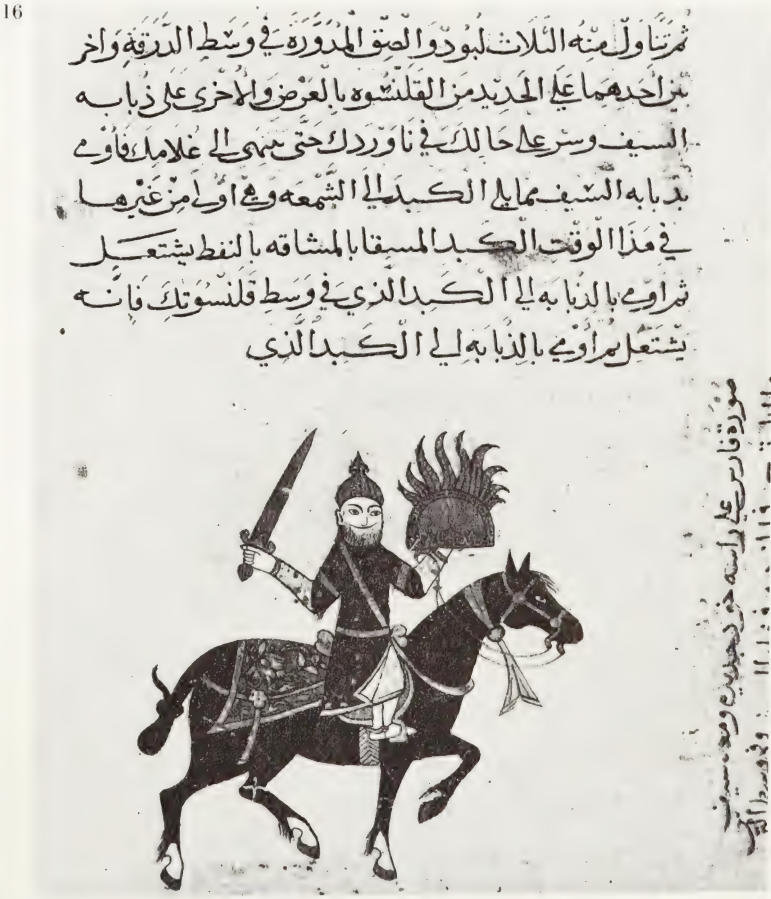 16
ثم تناول منه الثلاث لبود والصق المدورة في وسط الدرقة واخر
بين احدهما على الحديد من القلنسوه بالعرض والاخرى على ذبابه
السيف وسر على حالك في ناوردك حتى تنتهى الى غلامك فاومي
بذبابه السيف مما يلي الكبد الي الشمعه وهي اولى من غيرها
في هذا الوقت الكبد المسقا بالمشاقه بالنفط يشتعل
ثم اومي بالذبابه الي الكبد الذي في وسط قلنسوتك فانه
يشتعل ثم اومي بالذبابه الي الكبد الذي
صورة فارس علي راسه خود حديد ومعه سيف